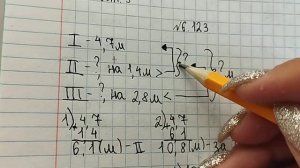 № 6.123
I - 4,7м
II - ?, на 1,4м > ?
III - ?, на 2,8м < ?м
1) + 4,7 2) + 4,7
1,4 6,1
6,1 (м) - II 10,8 (м) - за